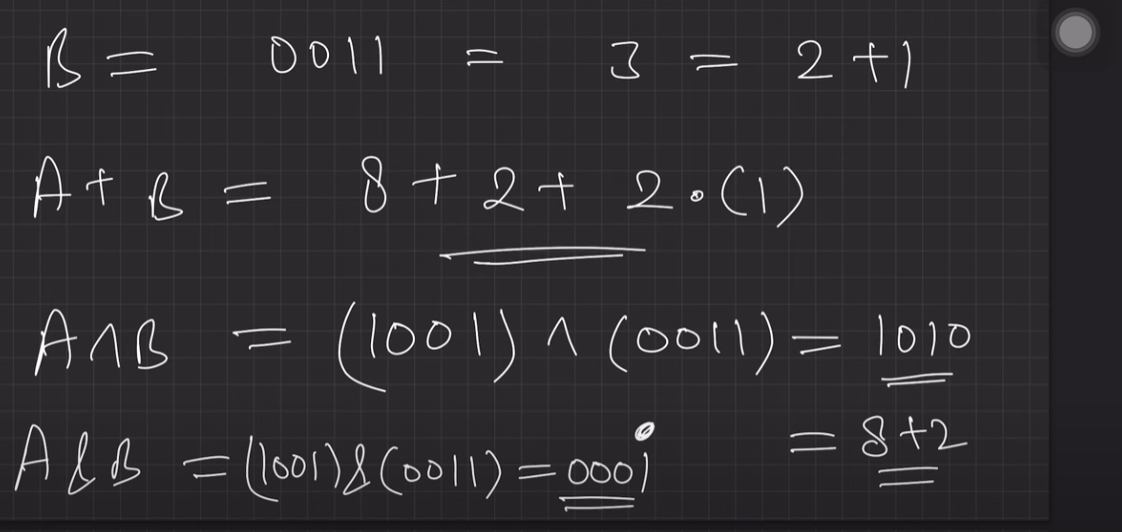 B = 0011 = 3 = 2+1
A + B = 8 + 2 + 2.(1)
A^B = (1001) ^ (0011) = 1010
= 8+2
A & B = (1001) & (0011) = 0001